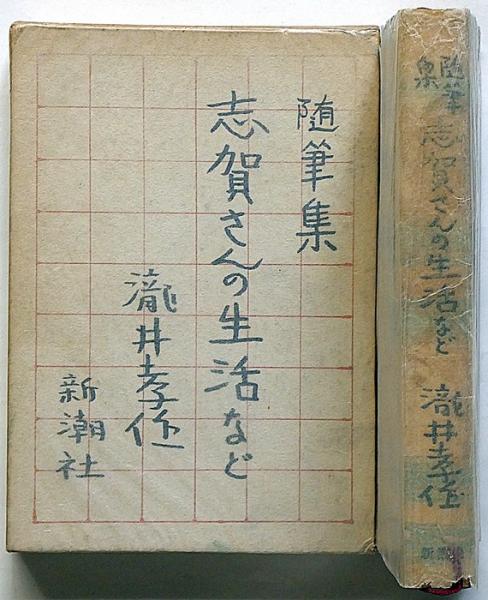 随筆集
志賀さんの生活など
瀧井孝作
新潮社
随筆集
志賀さんの生活など
瀧井孝作
新潮社